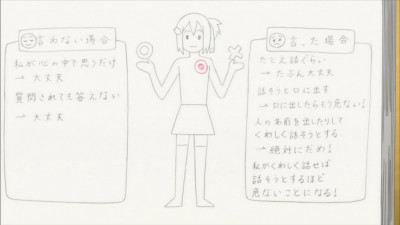 言わない場合
私が心の中で思うだけ
→大丈夫
質問されても答えない
→大丈夫
言った場合
たとえ話ぐらい
→たぶん大丈夫
話そうと口に出す
→口に出したらもう危ない!
人の名前を出したりして
くわしく話そうとする
→絶対にだめ!
私がくわしく話せば
話そうとするほど
危ないことになる!